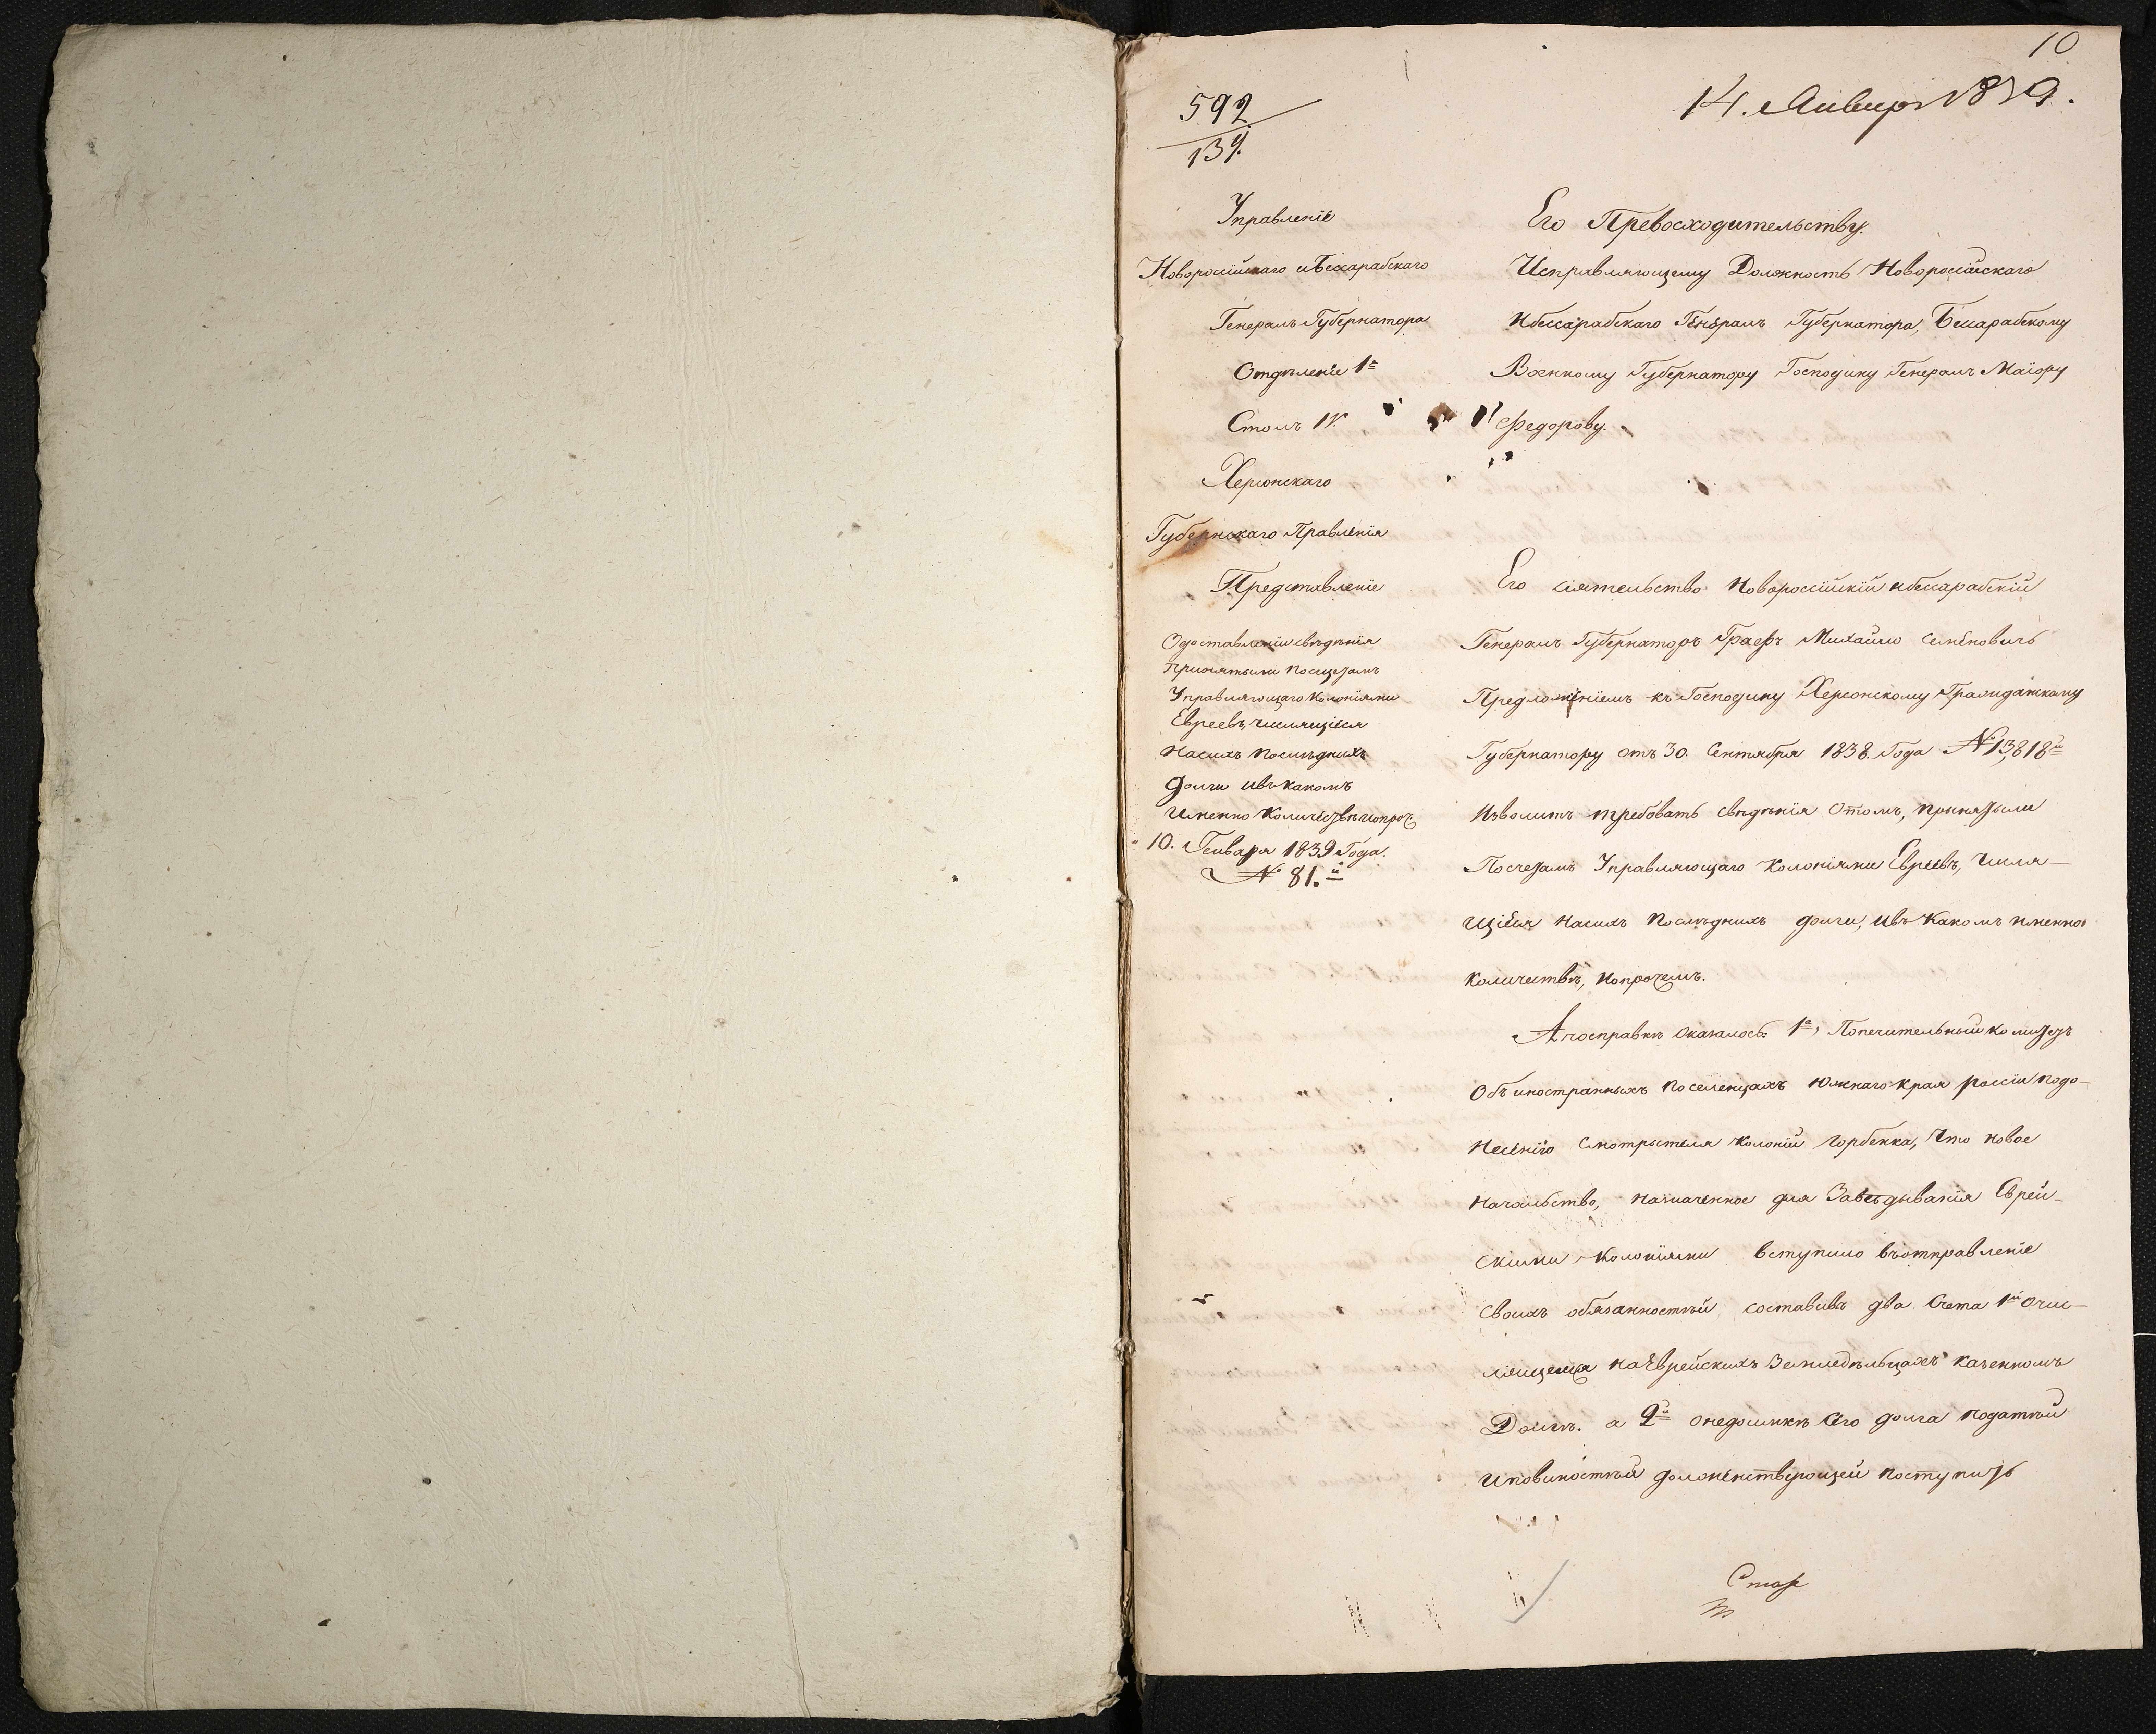 10
14. Января 1839.
592
139.
Управленіе
Новороссійскаго и Бессарабскаго
Генералъ Губернатора
Отдѣленіе 1е
Столъ IV.
Херсонскаго
Губернскаго Правленія
Представленіе
О доставленіи свѣдѣнія
приняты ли по сщетамъ
Управляющаго Колоніями
Евреевъ, числящіеся
на сихъ последнихъ
долги и въ какомъ
именно количествѣ и проч
10. Генваря 1839 Года.
№ 81.й
Его Превосходительству.
Исправляющему Должность Новороссійскаго
И бессарабскаго Генералъ Губернатора, Бессарабскому
Военному Губернатору Господину Генералъ Маіору
Федорову.
Его сіятельство Новороссійскій и бессарабскій
Генералъ Губернаторъ Графъ Михайло Семеновичъ
Предложеніемъ къ Господину Херсонскому Гражданскому
Губернатору отъ 30. Сентября 1838. Года № 13,818й
Изволитъ требовать свѣдѣнія о томъ, приняты ли
По счетамъ Управляющаго Колоніями Евреевъ, Числя-
щіеся на сихъ последнихъ долги, и въ какомъ именно
количествѣ, и о прочемъ.
А по справкѣ оказалось: 1е, Попечительный комитетъ
Объ иностранныхъ поселенцахъ Южнаго края россіи по до-
несенію Смотрителя колоній горбенка, что новое
начальство, назначенное для Завѣдыванія Еврей-
скими колоніями вступило въ отправленіе
своихъ обязанностей составивъ два Счета 1й о чис-
лящемся на Еврейскихъ Земледѣльцахъ казенномъ
Долгѣ. а 2й о недоимкѣ сего долга податѣй
и повиностѣй долженствующей поступить
Стар